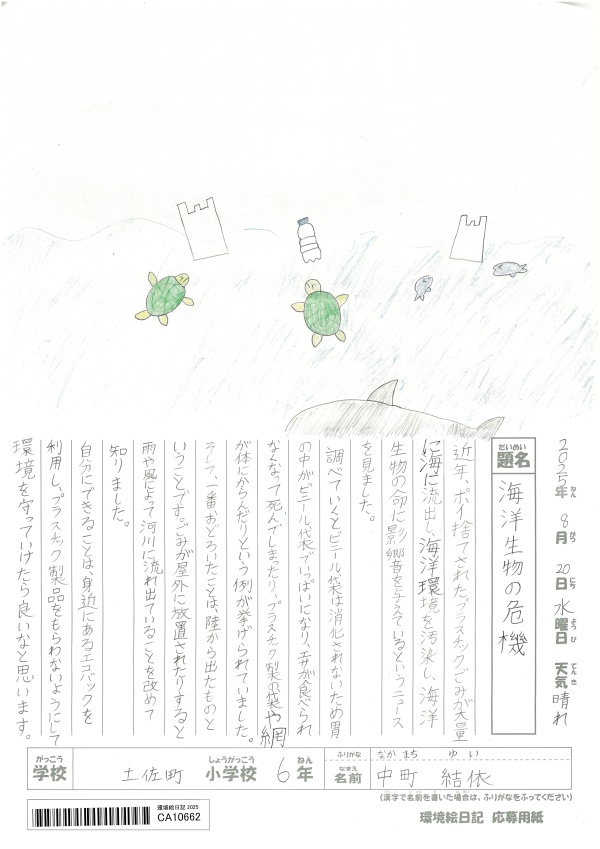 2025年ねん 8月がつ 20日にち 水曜日ようび 天気てんき 晴れ
だいめい
題名 海洋生物の危機
近年、ポイ捨てされたプラスチックごみが大量
に海に流出し、海洋環境を汚染し、海洋
生物の命に影響を与えているというニュース
を見ました。
調べていくとビニール袋は消化されないため胃
の中がビニール袋でいっぱいになり、エサが食べられ
なくなって死んでしまったり、プラスチック製の袋や網
が体にからんだりという例が挙げられていました。
そして、一番おどろいたことは、陸から出たものと
いうことです。ごみが屋外に放置されたりすると
雨や風によって河川に流れ出ていることを改めて
知りました。
自分にできることは、身近にあるエコバックを
利用し、プラスチック製品をもらわないようにして
環境を守っていけたら良いなと思います。
がっこう
学校 土佐町 小学校しょうがっこう 6年ねん
ふりがな なかまち ゆい
名前なまえ 中町 結依
(漢字で名前を書いた場合は、ふりがなをふってください)
環境絵日記 応募用紙
環境絵日記 2025
CA10662